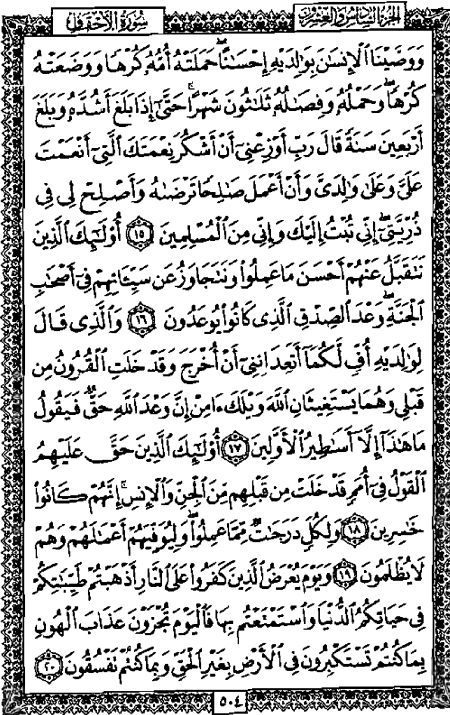 الجزء السادس والعشرون
سورة الأحقاف
وَوَصَّيْنَا ٱلْإِنسَٰنَ بِوَٰلِدَيْهِ إِحْسَٰنًا حَمَلَتْهُ أُمُّهُۥ كُرْهًا وَوَضَعَتْهُ
كُرْهًا وَحَمْلُهُۥ وَفِصَٰلُهُۥ ثَلَٰثُونَ شَهْرًا حَتَّىٰٓ إِذَا بَلَغَ أَشُدَّهُۥ وَبَلَغَ
أَرْبَعِينَ سَنَةً قَالَ رَبِّ أَوْزِعْنِىٓ أَنْ أَشْكُرَ نِعْمَتَكَ ٱلَّتِىٓ أَنْعَمْتَ
عَلَىَّ وَعَلَىٰ وَٰلِدَىَّ وَأَنْ أَعْمَلَ صَٰلِحًا تَرْضَىٰهُ وَأَصْلِحْ لِى فِى
ذُرِّيَّتِىٓ إِنِّى تُبْتُ إِلَيْكَ وَإِنِّى مِنَ ٱلْمُسْلِمِينَ ١٥ أُو۟لَٰٓئِكَ ٱلَّذِينَ
نَتَقَبَّلُ عَنْهُمْ أَحْسَنَ مَا عَمِلُوا۟ وَنَتَجَاوَزُ عَن سَيِّـَٔاتِهِمْ فِىٓ أَصْحَٰبِ
ٱلْجَنَّةِ وَعْدَ ٱلصِّدْقِ ٱلَّذِى كَانُوا۟ يُوعَدُونَ ١٦ وَٱلَّذِى قَالَ
لِوَٰلِدَيْهِ أُفٍّ لَّكُمَآ أَتَعِدَانِنِىٓ أَنْ أُخْرَجَ وَقَدْ خَلَتِ ٱلْقُرُونُ مِن
قَبْلِى وَهُمَا يَسْتَغِيثَانِ ٱللَّهَ وَيْلَكَ ءَامِنْ إِنَّ وَعْدَ ٱللَّهِ حَقٌّ فَيَقُولُ
مَا هَٰذَآ إِلَّآ أَسَٰطِيرُ ٱلْأَوَّلِينَ ١٧ أُو۟لَٰٓئِكَ ٱلَّذِينَ حَقَّ عَلَيْهِمُ
ٱلْقَوْلُ فِىٓ أُمَمٍ قَدْ خَلَتْ مِن قَبْلِهِم مِّنَ ٱلْجِنِّ وَٱلْإِنسِ إِنَّهُمْ كَانُوا۟
خَٰسِرِينَ ١٨ وَلِكُلٍّ دَرَجَٰتٌ مِّمَّا عَمِلُوا۟ وَلِيُوَفِّيَهُمْ أَعْمَٰلَهُمْ وَهُمْ
لَا يُظْلَمُونَ ١٩ وَيَوْمَ يُعْرَضُ ٱلَّذِينَ كَفَرُوا۟ عَلَى ٱلنَّارِ أَذْهَبْتُمْ طَيِّبَٰتِكُمْ
فِى حَيَاتِكُمُ ٱلدُّنْيَا وَٱسْتَمْتَعْتُم بِهَا فَٱلْيَوْمَ تُجْزَوْنَ عَذَابَ ٱلْهُونِ
بِمَا كُنتُمْ تَسْتَكْبِرُونَ فِى ٱلْأَرْضِ بِغَيْرِ ٱلْحَقِّ وَبِمَا كُنتُمْ تَفْسُقُونَ ٢٠
٥٠٤